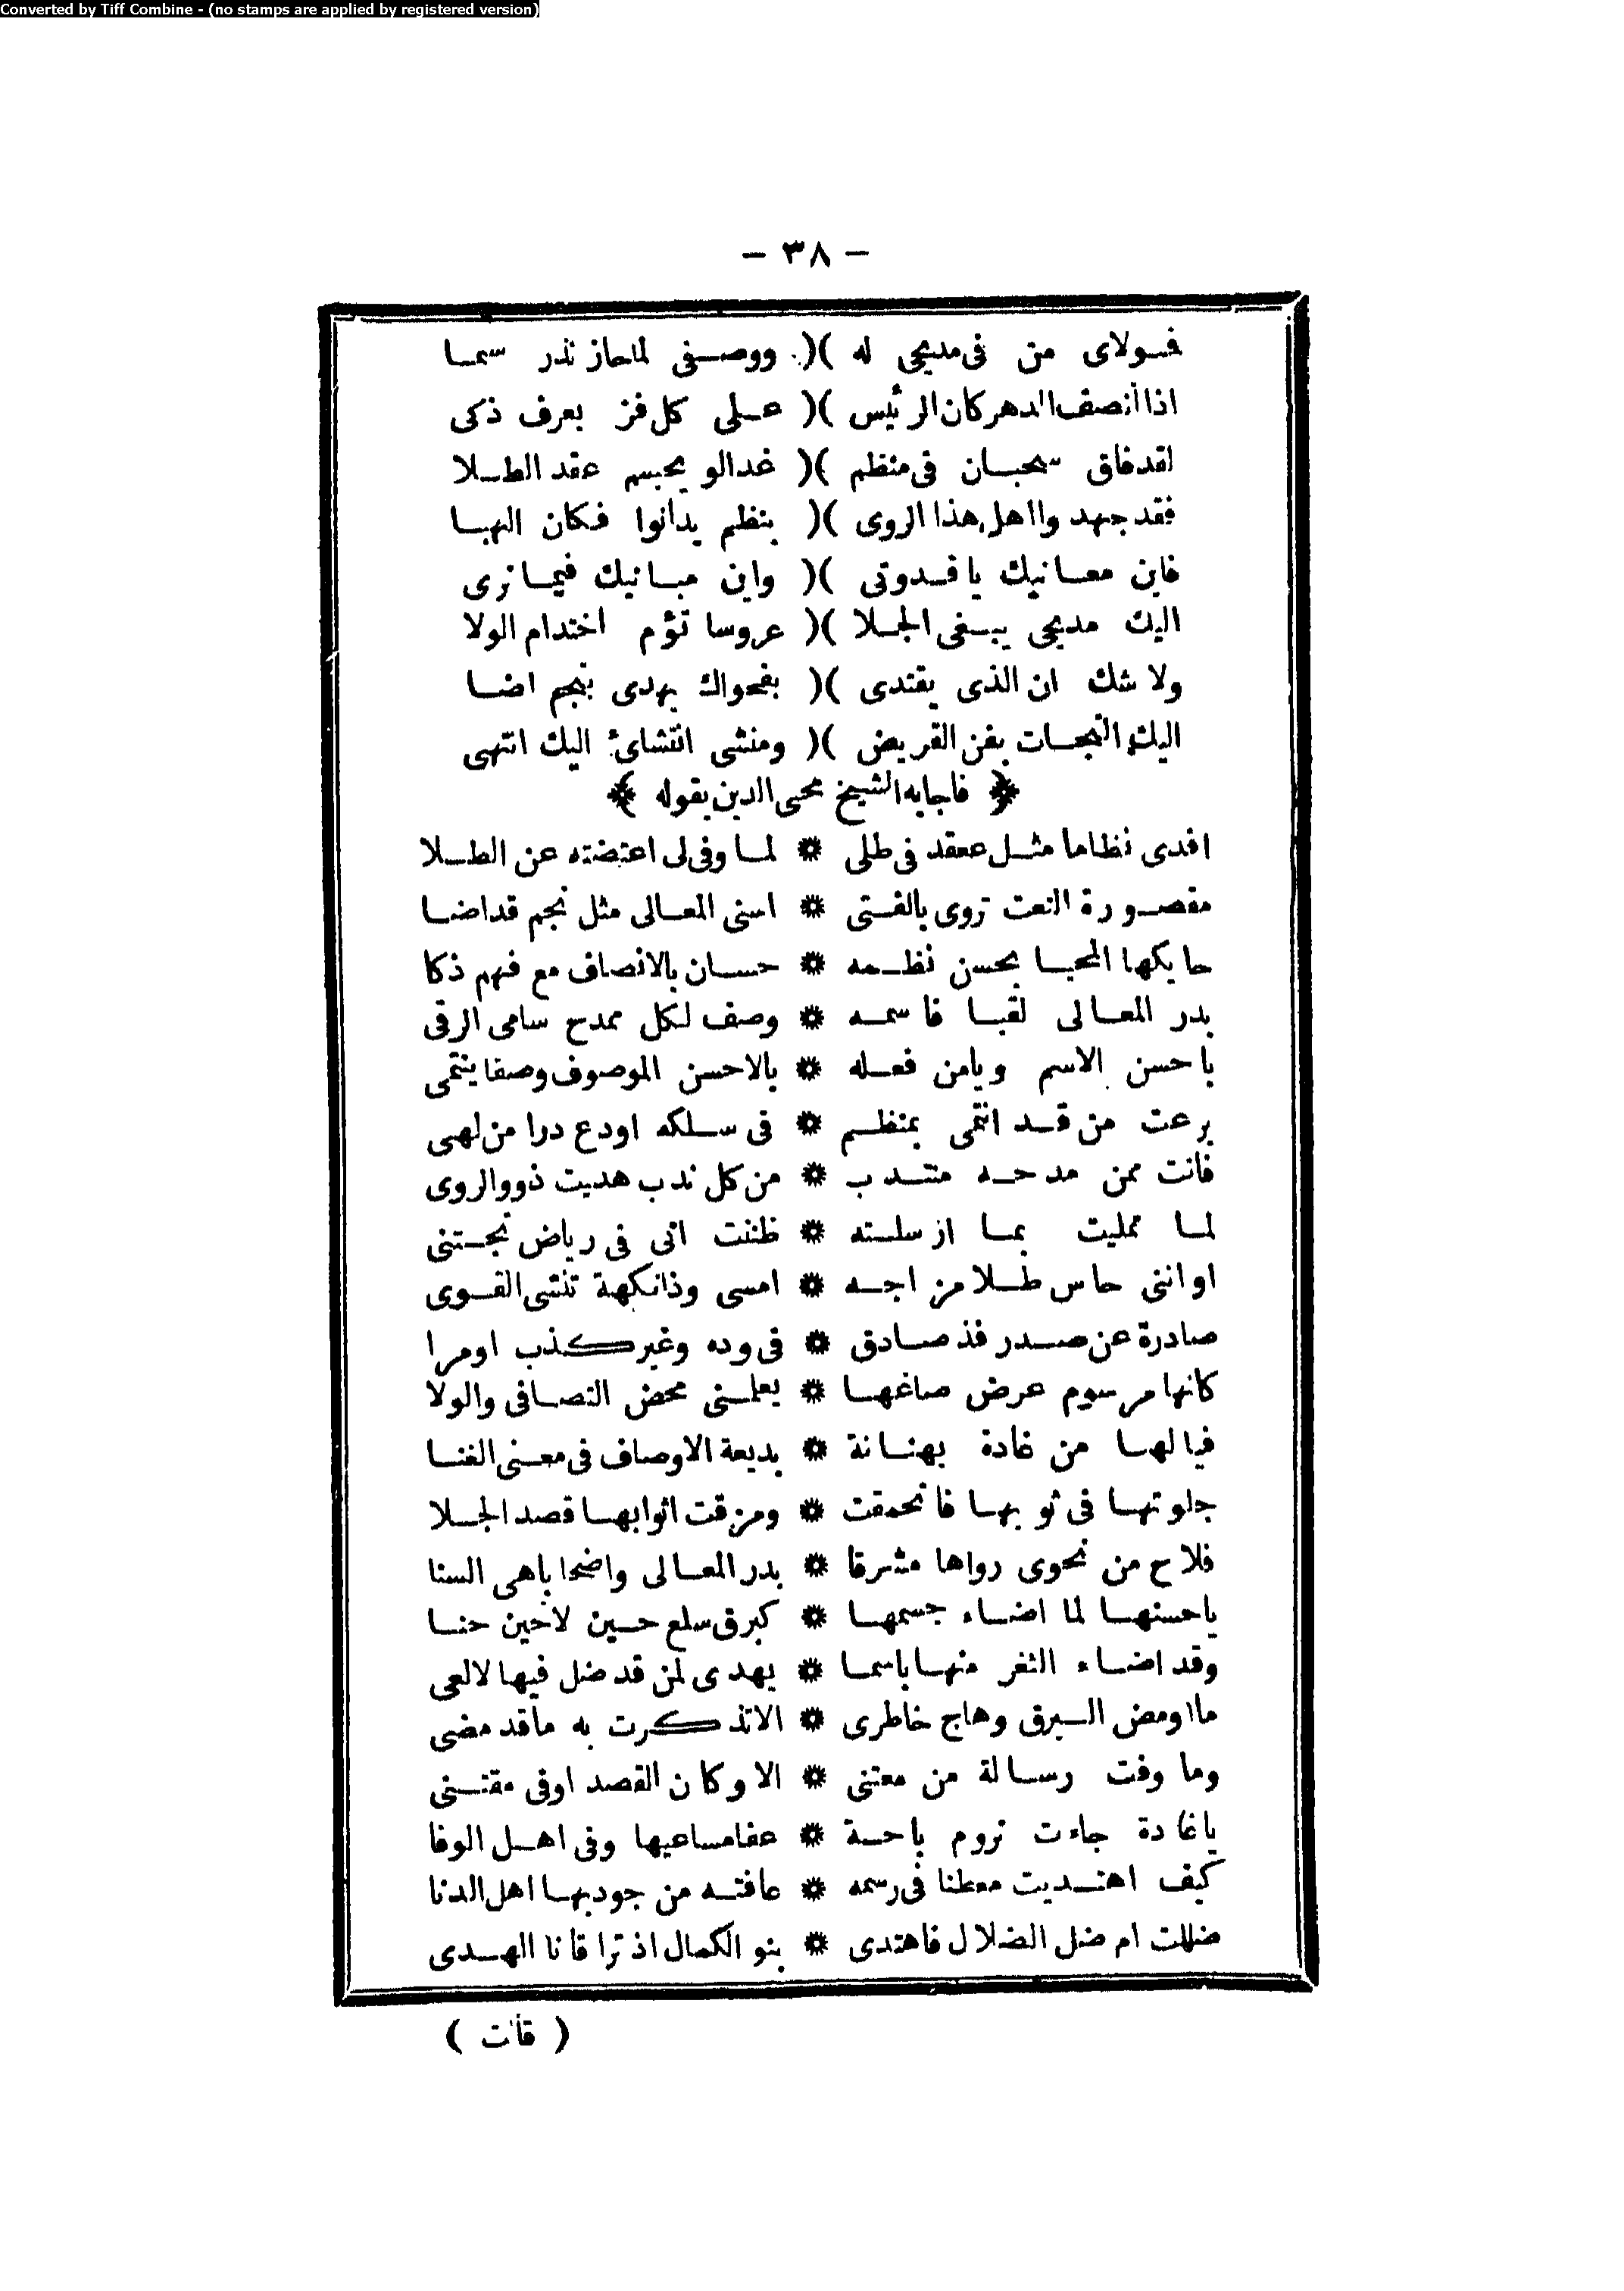 Converted by Tiff Combine - (no stamps are applied by registered version)
— ٣٨ —
فولاى من فى مديحى له )( ووصفى لماحاز نذر سما
اذا أنصف الدهر كان الرئيس )( على كل فز بعرف ذكى
لقد فاق سحبان فى منظم )( غدا لو يجسم عقد الطلا
فقد جهد وا اهل هذا الروى )( بنظم يدانوا فكان الهبا
فاين معانيك يا قدوتى )( واين مبانيك فيما نرى
اليك مديحى يبغى الجلا )( عروسا تؤم اختدام الولا
ولا شك ان الذى يقتدى )( بفحواك يهدى بنجم اضا
اليك التجات بفن القريض )( ومنشى انتشائ اليك انتهى
﴿ فاجابه الشيخ محيى الدين بقوله ﴾
افدى نظاما مثل عقد فى طلى * لما وفى لى اعتضته عن الطلا
مقصورة النعت تروى بالفتى * اسنى المعالى مثل نجم قد اضا
حايكها المحيا بحسن نظمه * حسان بالانصاف مع فهم ذكا
بدر المعالى لقبا فاسمه * وصف لكل ممدح سامى الرقى
ياحسن الاسم ويامن فعله * بالاحسن الموصوف وصفا ينتمى
برعت من قد انتمى بمنظم * فى سلكه اودع درا من لهى
فانت ممن مدحه منتدب * من كل ندب هديت ذووالروى
لما تمليت بما ارسلته * ظننت انى فى رياض نجتنى
او اننى حاس طلا من اجه * امسى وذا نكهة تنشى القوى
صادرة عن صدر فذ صادق * فى وده وغير كذب او مرا
كانها مرسوم عرض صاغها * يعلمنى محض التصافى والولا
فيالها من غادة بهنانة * بديعة الاوصاف فى معنى الغنا
جلوتها فى ثوبها فانحمقت * ومزقت اثوابها قصد الجلا
فلاح من نحوى رواها مشرقا * بدر المعالى واضحا باهى السنا
ياحسنها لما اضاء جسمها * كبرق سلع حسين لاحين حنا
وقد اضاء الثغر منها باسما * يهدى لمن قد ضل فيها لا لعى
ما اومض البرق وهاج خاطرى * الا تذكرت به ماقد مضى
وما وفت رسالة من معتنى * الا وكان القصد اوفى مقتنى
ياغادة جاءت تروم باحة * عفا مساعيها وفى اهل الوفا
كيف اهتديت معطنا فى رسمه * عافته من جودبها اهل الدنا
ضللت ام ضل الضلال فاهتدى * بنو الكمال اذ تراقانا الهدى
( قأت )